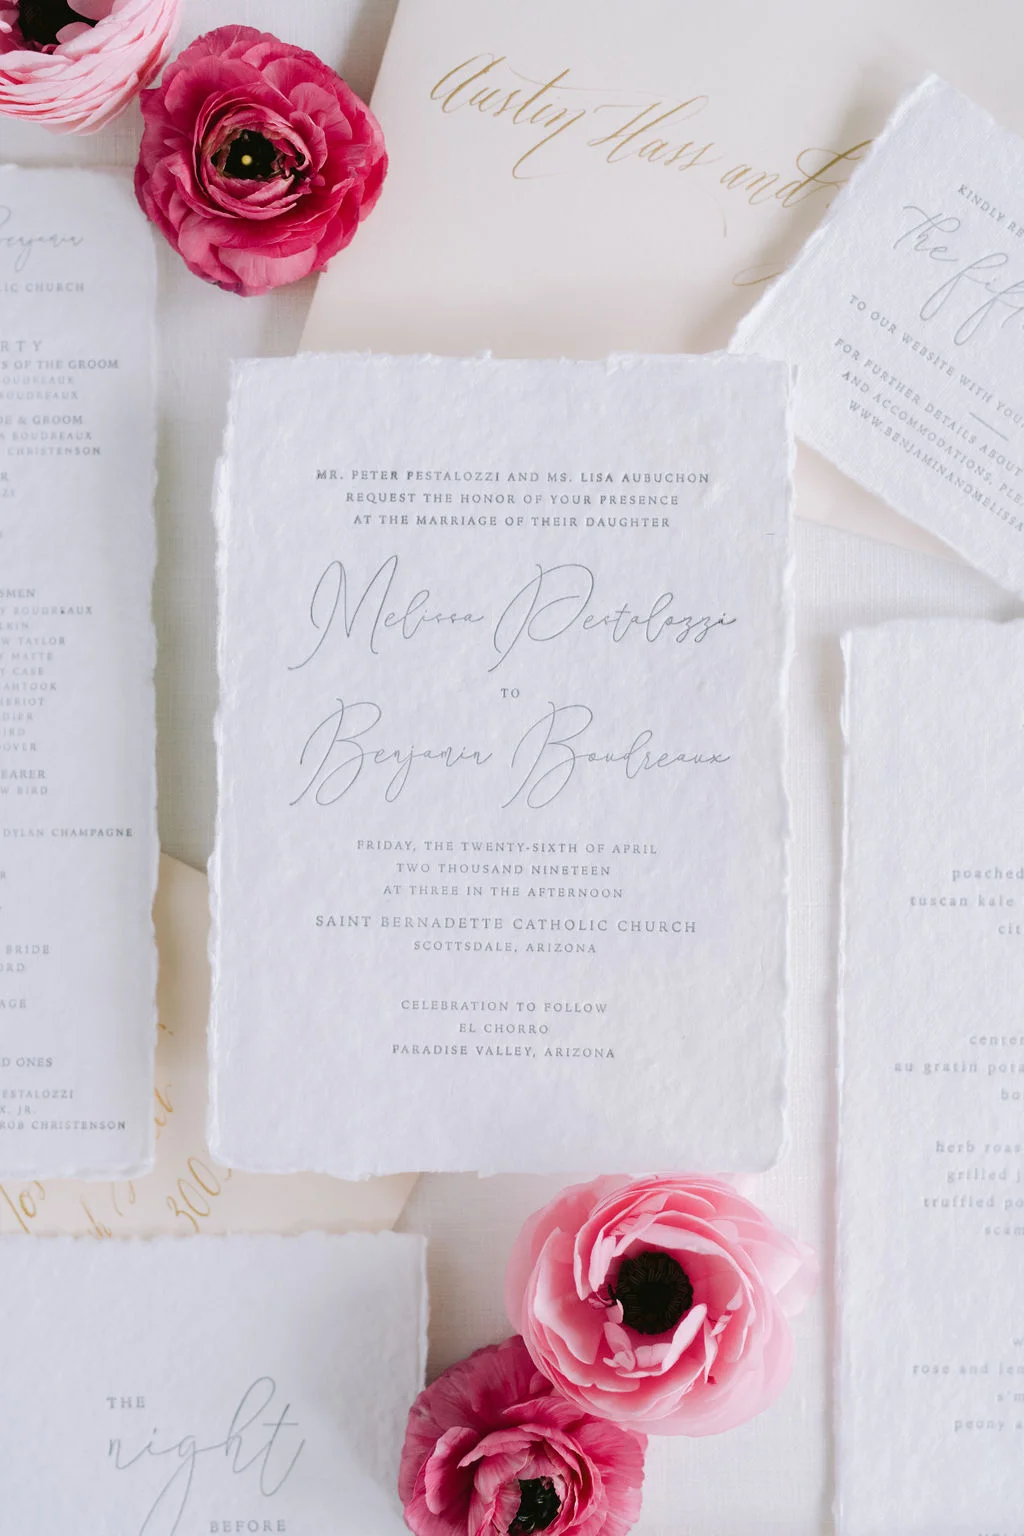 Austin Hass and
Benjamin
CHURCH
OF THE GROOM
BOUDREAUX
BOUDREAUX
& GROOM
BOUDREAUX
CHRISTENSON
BOUDREAUX
TAYLOR
MATTE
CASE
BIRD
DYLAN CHAMPAGNE
BRIDE
ONES
PESTALOZZI
JR.
ROB CHRISTENSON
KINDLY
The
TO OUR WEBSITE WITH YOUR
FOR FURTHER DETAILS ABOUT
AND ACCOMMODATIONS,
WWW.BENJAMINANDMELISSA
MR. PETER PESTALOZZI AND MS. LISA AUBUCHON
REQUEST THE HONOR OF YOUR PRESENCE
AT THE MARRIAGE OF THEIR DAUGHTER
Melissa Pestalozzi
TO
Benjamin Boudreaux
FRIDAY, THE TWENTY-SIXTH OF APRIL
TWO THOUSAND NINETEEN
AT THREE IN THE AFTERNOON
SAINT BERNADETTE CATHOLIC CHURCH
SCOTTSDALE, ARIZONA
CELEBRATION TO FOLLOW
EL CHORRO
PARADISE VALLEY, ARIZONA
poached
tuscan kale
cit
center
au gratin pota
bo
herb roas
grilled j
truffled po
scam
rose and lem
s'm
peony a
300
THE
night
BEFORE